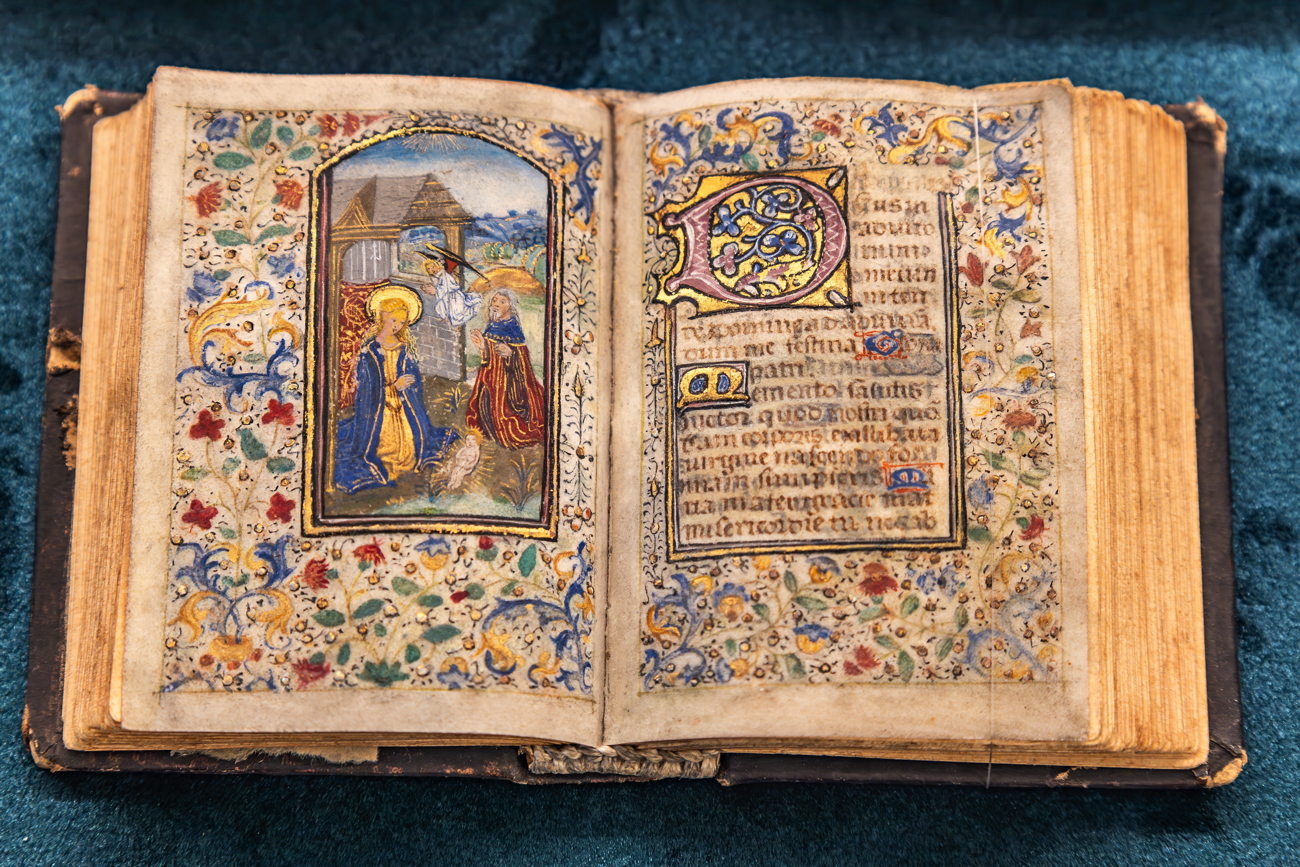 us in
adiuto
rium
meum
inten
de Domine ad adiuuã
dum me festina Glo
patri
Memento salutis
auctor quod nostri quo
dam corporis ex illibata
uirgine nascendo for
mam sumpseris Ma
ria mater gracie mat
misericordie tu nos ab